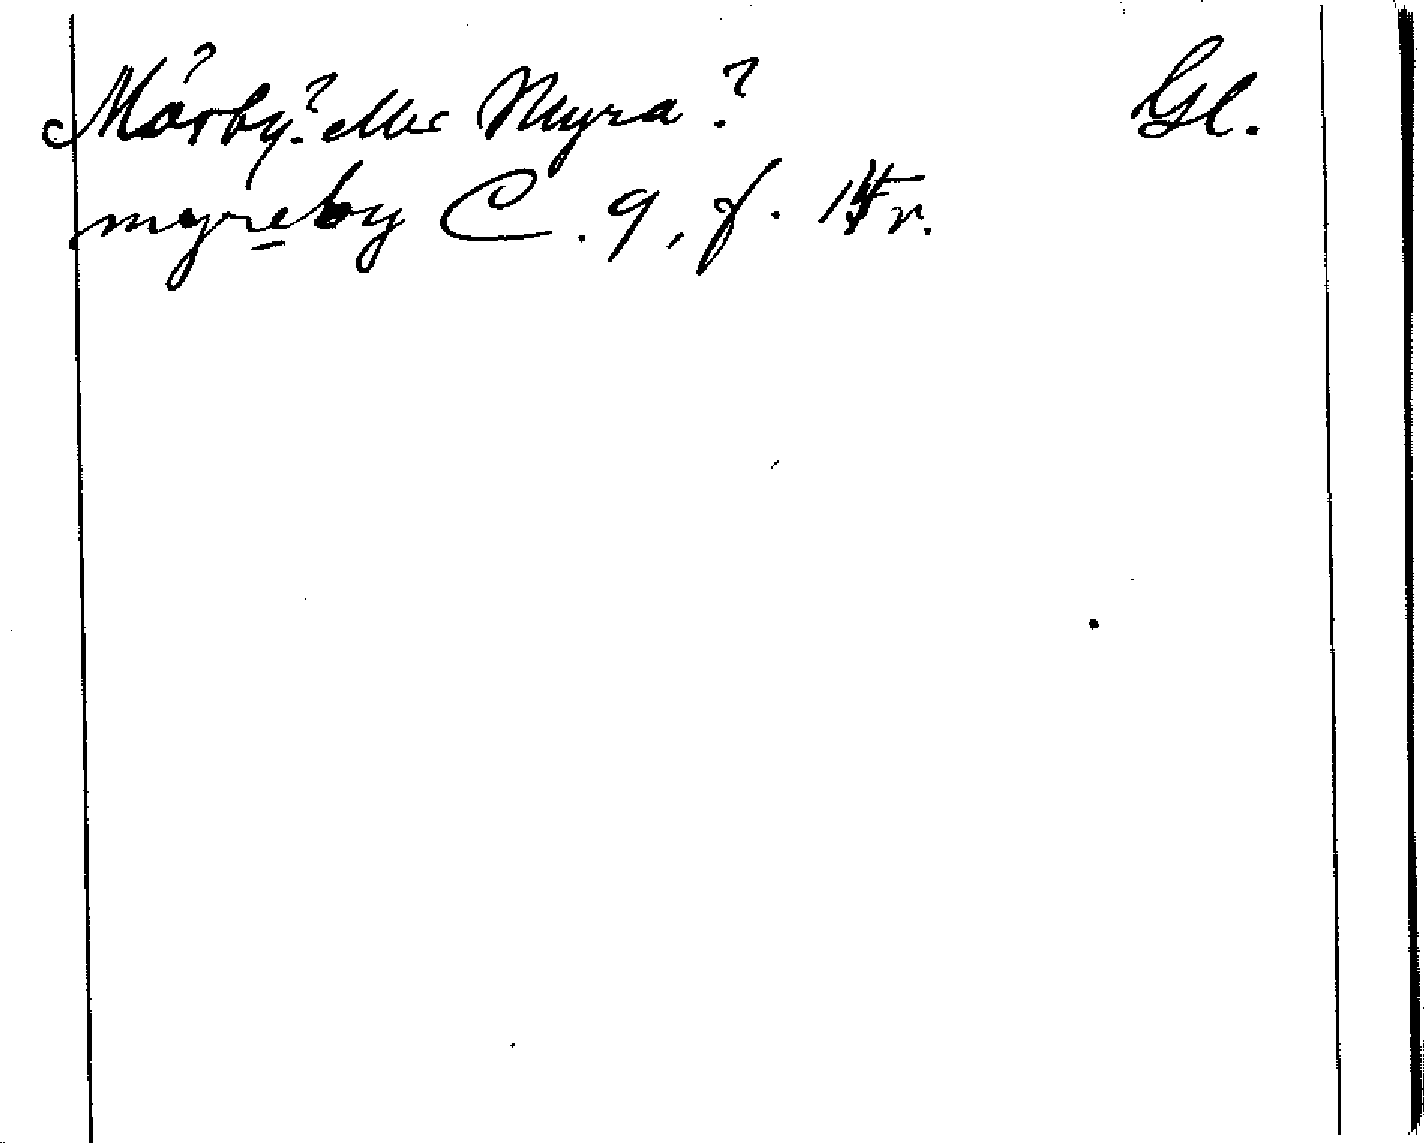 Mörby? eller Myra? Gl.
myreby C. 9, f. 15 r.